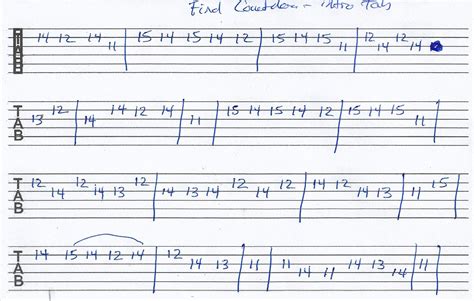 Final Countdown - intro Tab
14 12 14 11 | 15 14 15 14 12 | 15 14 15 11 | 12 14 12 14
T A B 13 12 | 14 14 12 14 | 11 | 15 15 14 15 12 | 11 14
T A B 12 14 12 14 13 12 | 13 14 14 12 12 | 14 13 | 11 15
T A B 14 15 14 12 14 | 12 14 13 | 11 | 11 11 14 13 14 | 11